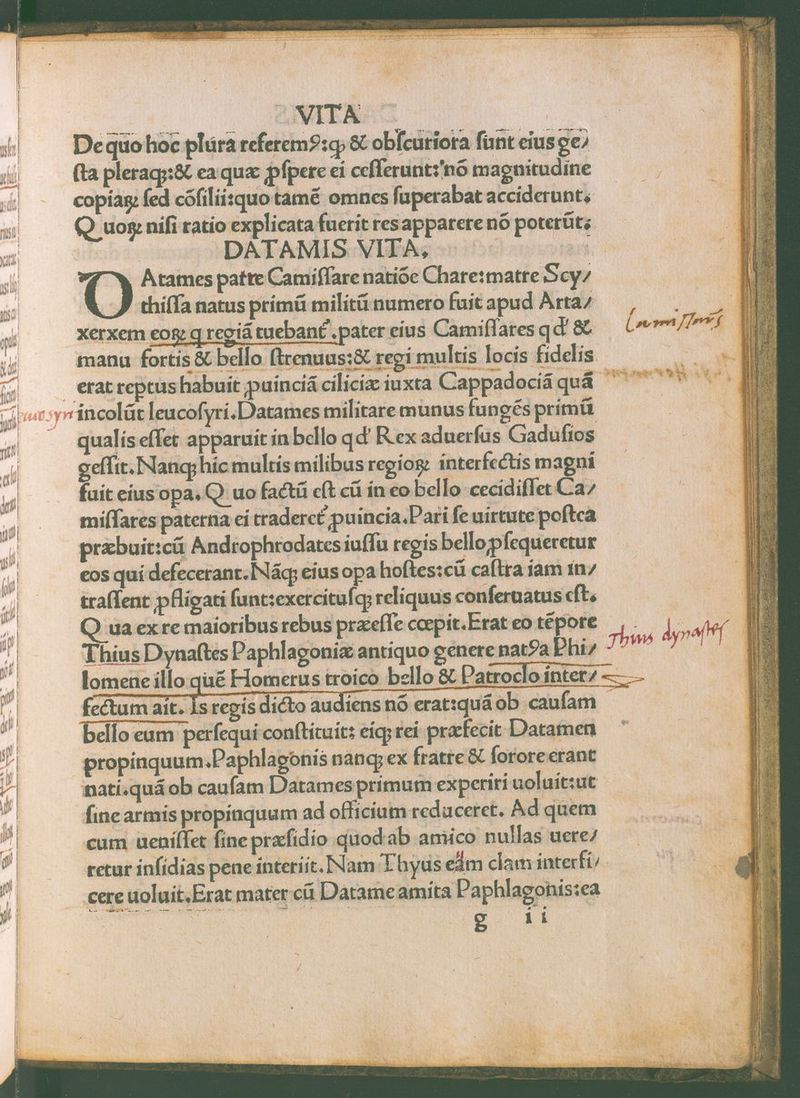 VITA
De quo hoc plura referemꝰ:qꝫ & obſcuriora ſunt eius ge⸗
ſta pleraqꝫ:& ea quæ ꝓſpere ei ceſſerunt:nõ magnitudine
copiaꝝ ſed cõſilii:quo tamẽ omnes ſuperabat acciderunt.
Quoꝝ niſi ratio explicata fuerit res apparere nõ poterũt:
DATAMIS VITA.
DAtames patre Camiſſare natiõe Chare:matre Scy⸗
thiſſa natus primũ militũ numero fuit apud Arta⸗
xerxem eoꝝ q regiã tuebanť.pater eius Camiſſares qđ &
manu fortis & bello ſtrenuus:& regi multis locis fidelis
erat reptus habuit ꝓuinciã ciliciæ iuxta Cappadociã quã
incolũt leucoſyri.Datames militare munus fungẽs primũ
qualis eſſet apparuit in bello qđ Rex aduerſus Gaduſios
geſſit.Nanqꝫ hic multis milibus regioꝝ interfectis magni
fuit eius opa.Quo factũ eſt cũ in eo bello cecidiſſet Ca⸗
miſſares paterna ei traderet́ ꝓuincia.Pari ſe uirtute poſtea
præbuit:cũ Androphrodates iuſſu regis bello ꝓſequeretur
eos qui defecerant.Nãqꝫ eius opa hoſtes:cũ caſtra iam in⸗
traſſent ꝓfligati ſunt:exercituſqꝫ reliquus conſeruatus eſt.
Qua ex re maioribus rebus præeſſe cœpit.Erat eo tẽpore
Thius Dynaſtes Paphlagoniæ antiquo genere natꝰa Phi⸗
lomene illo quẽ Homerus troico bello & Patroclo inter⸗
fectum ait. Is regis dicto audiens nõ erat:quã ob cauſam
bello eum perſequi conſtituit: eiqꝫ rei præfecit Datamen
propinquum.Paphlagonis nanqꝫ ex fratre & ſorore erant
nati.quã ob cauſam Datames primum experiri uoluit:ut
ſine armis propinquum ad officium reduceret. Ad quem
cum ueniſſet ſine præſidio quod ab amico nullas uere⸗
retur inſidias pene interiit.Nam Thyus eũm clam interfi⸗
cere uoluit.Erat mater cũ Datame amita Paphlagonis:ea
g ii
Camiſſares
Thius dynaſtes